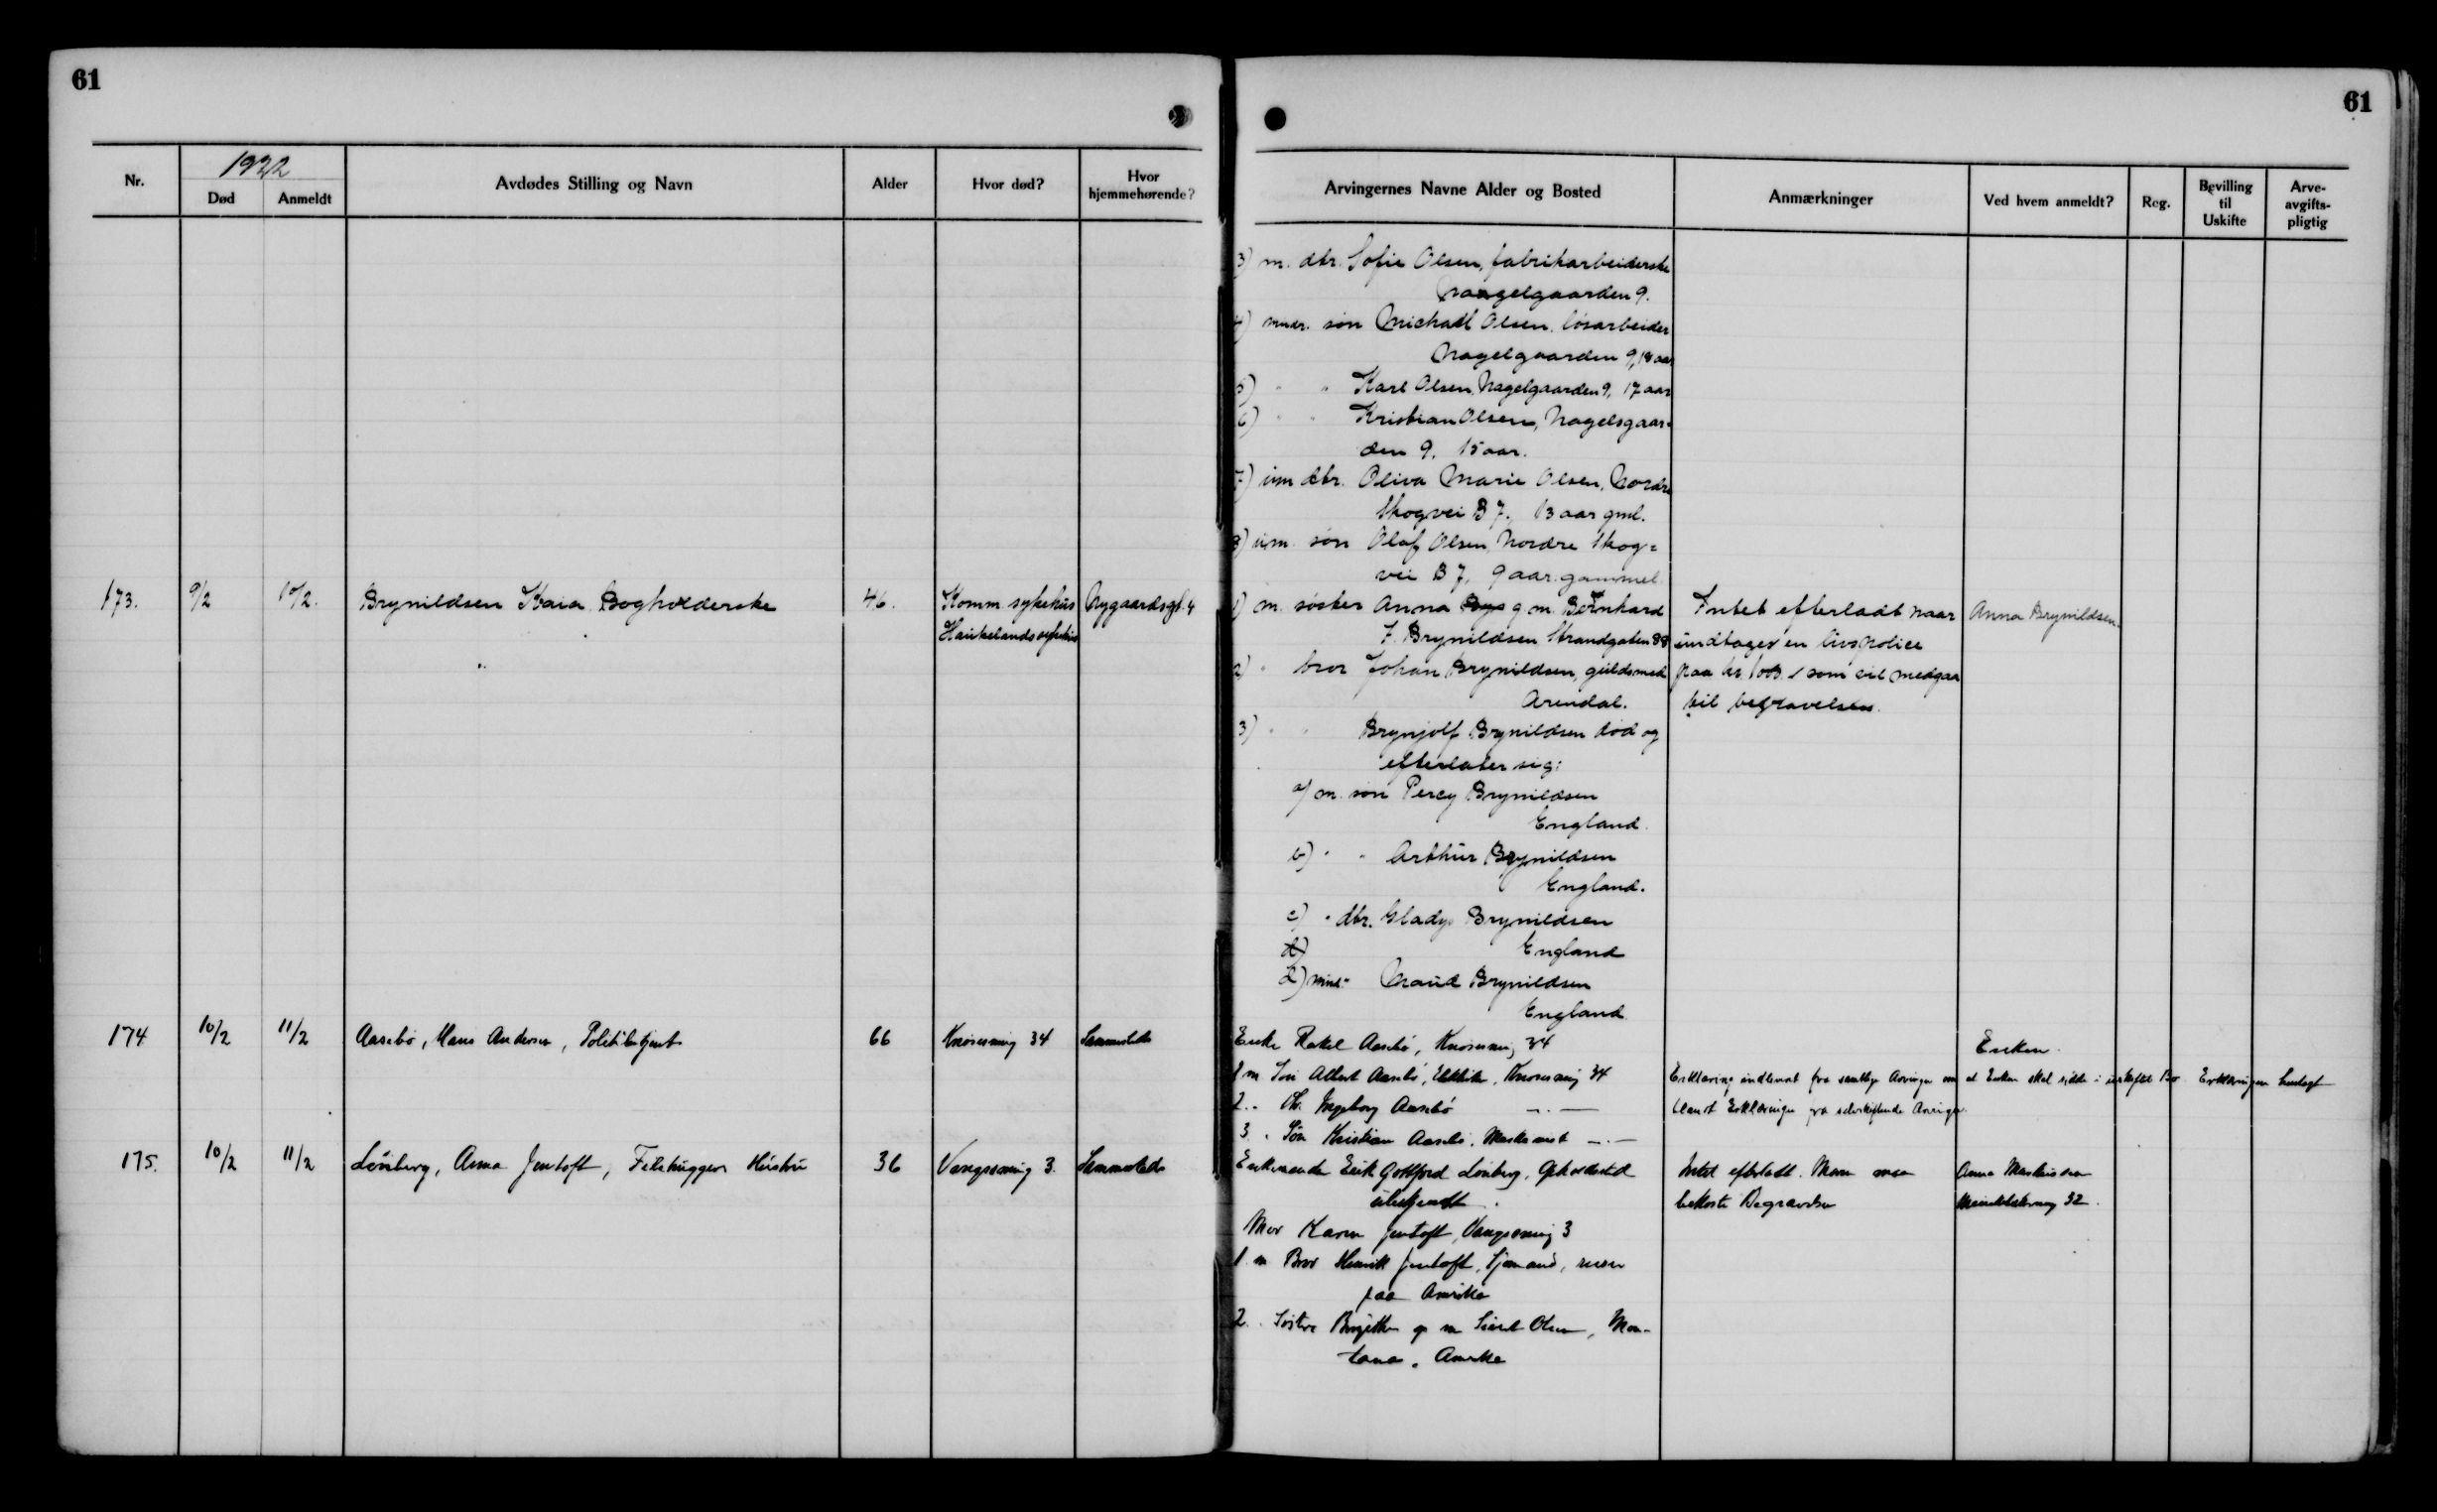 61
61
Nr.
1922
Død
Anmeldt
Avdødes Stilling og Navn
Alder
Hvor død?
Hvor
hjemmehørende?
Arvingernes Navne Alder og Bosted
Anmærkninger
Ved hvem anmeldt?
Reg.
Bevilling
til
Uskifte
Arve-
avgifts-
pligtig
3) m. dtr. Sofie Olsen, fabrikarbeiderske
Naagelgaarden 9.
4) mndr. søn Michael Olsen, løsarbeider
Nagelgaarden 9, 18 aar
5) " " Karl Olsen, Nagelgaarden 9, 17 aar
6) " " Kristian Olsen, Nagelsgaar-
den 9. 15 aar.
7) um dtr. Oliva Marie Olsen, Nordre
Skogvei B 7. 13 aar gml.
8) um. søn Olaf Olsen, Nordre Skog=
vei B 7, 9 aar gammel.
173. 9/2 10/2. Brynildsen Kaia Bogholderske 46. Komm. sykehus Nygaardsgt. 4
Haukelands sykehus
1) m. søster Anna g. m. Bernhard
F. Brynildsen Strandgaten 88
2) " bror Johan Brynildsen, guldsmed
Arendal.
3) " " Brynjolf Brynildsen død og
efterlater sig:
a) m. søn Percy Brynildsen
England.
b) " " Arthur Brynildsen
England.
c) " dtr. Gladys Brynildsen
d) England
d) mind. Maud Brynildsen
England
Intet efterladt naar
undtages en livspolice
paa kr. som vil medgaa
til begravelsen.
Anna Brynildsen.
174 10/2 11/2 Aasebø, Hans Andersen, Politibetjent 66 Knøsesmug 34 Sammesteds
Enke Rakel Aasebø, Knøsesmug 34
1 m Søn Albert Aasebø, , Knøsesmug 34
2. " Dtr. Ingeborg Aasebø — " —
3. " Søn Kristian Aasebø, Maskinist — " —
Erklæring indlevert fra samtlige Arvinger om at Enken skal sidde i uskiftet Bo Erklæringen henlagt
blandt Erklæringer fra selvskiftende Arvinger.
Enken.
175. 10/2 11/2 Lönberg, Anna Jentoft, Filehuggers Hustru 36 Vangsmug 3. Sammesteds
Enkemanden Erik Gottfred Lönberg, Opholdssted
ubekjendt.
Mor Karen Jentoft, Vangsmug 3
1. m. Bror Henrik Jentoft, Sjømand, reiser
paa Amerika
2. " Søster Birgitte g. m. Olsen, Mon-
tana, Amerika
Intet efterladt. Mann maa
bekoste Begravelsen
Anna
32.